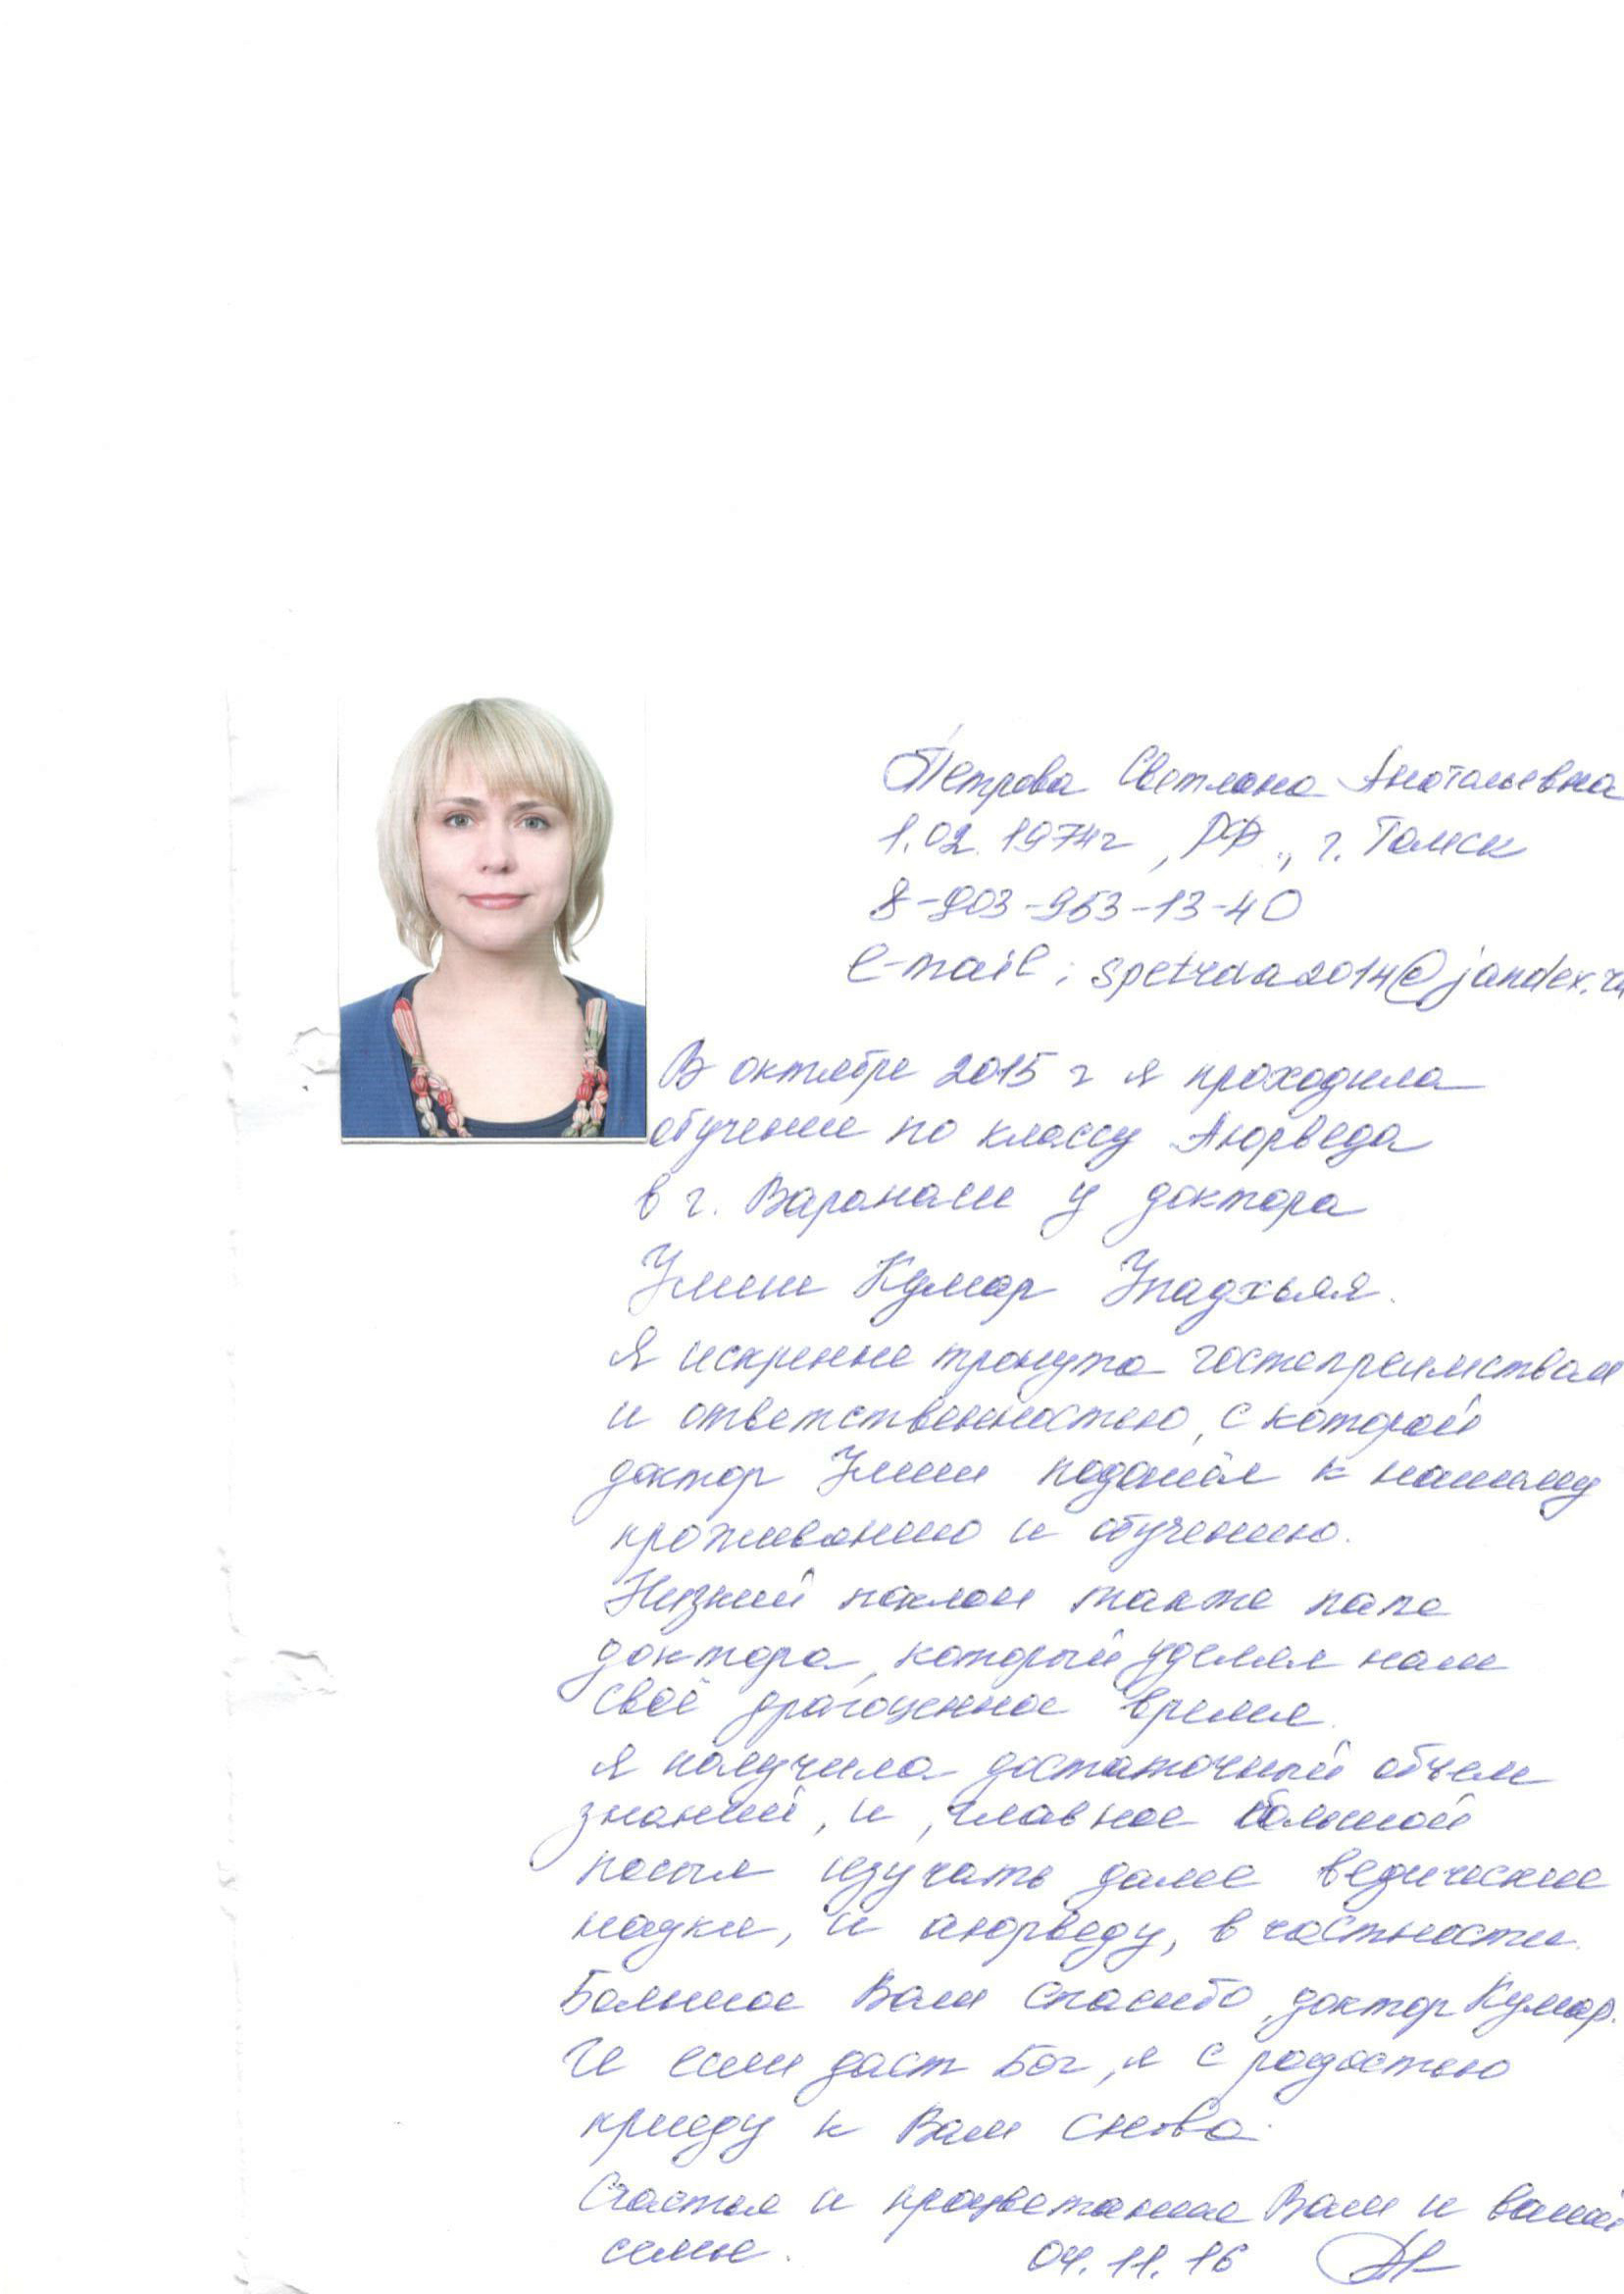 Петрова Светлана Анатольевна
1.02.1974г, РФ., г. Томск
8-903-953-13-40
e-mail: spetrova2014@jandex.ru
В октябре 2015 г я проходила
обучение по классу Аюрведа
в г. Варанаси у доктора
Умеш Кумар Упадхьяя.
Я искренне тронута гостеприимством
и ответственностью, с которой
доктор Умеш подошёл к нашему
проживанию и обучению.
Низкий поклон также папе
доктора, который уделял нам
своё драгоценное время.
Я получила достаточный объем
знаний, и, главное большой
посыл изучать далее ведические
науки, и аюрведу, в частности.
Большое Вам спасибо, доктор Кумар.
И если даст Бог, я с радостью
приеду к Вам снова.
Счастья и процветания Вам и вашей
семье. 04.11.16